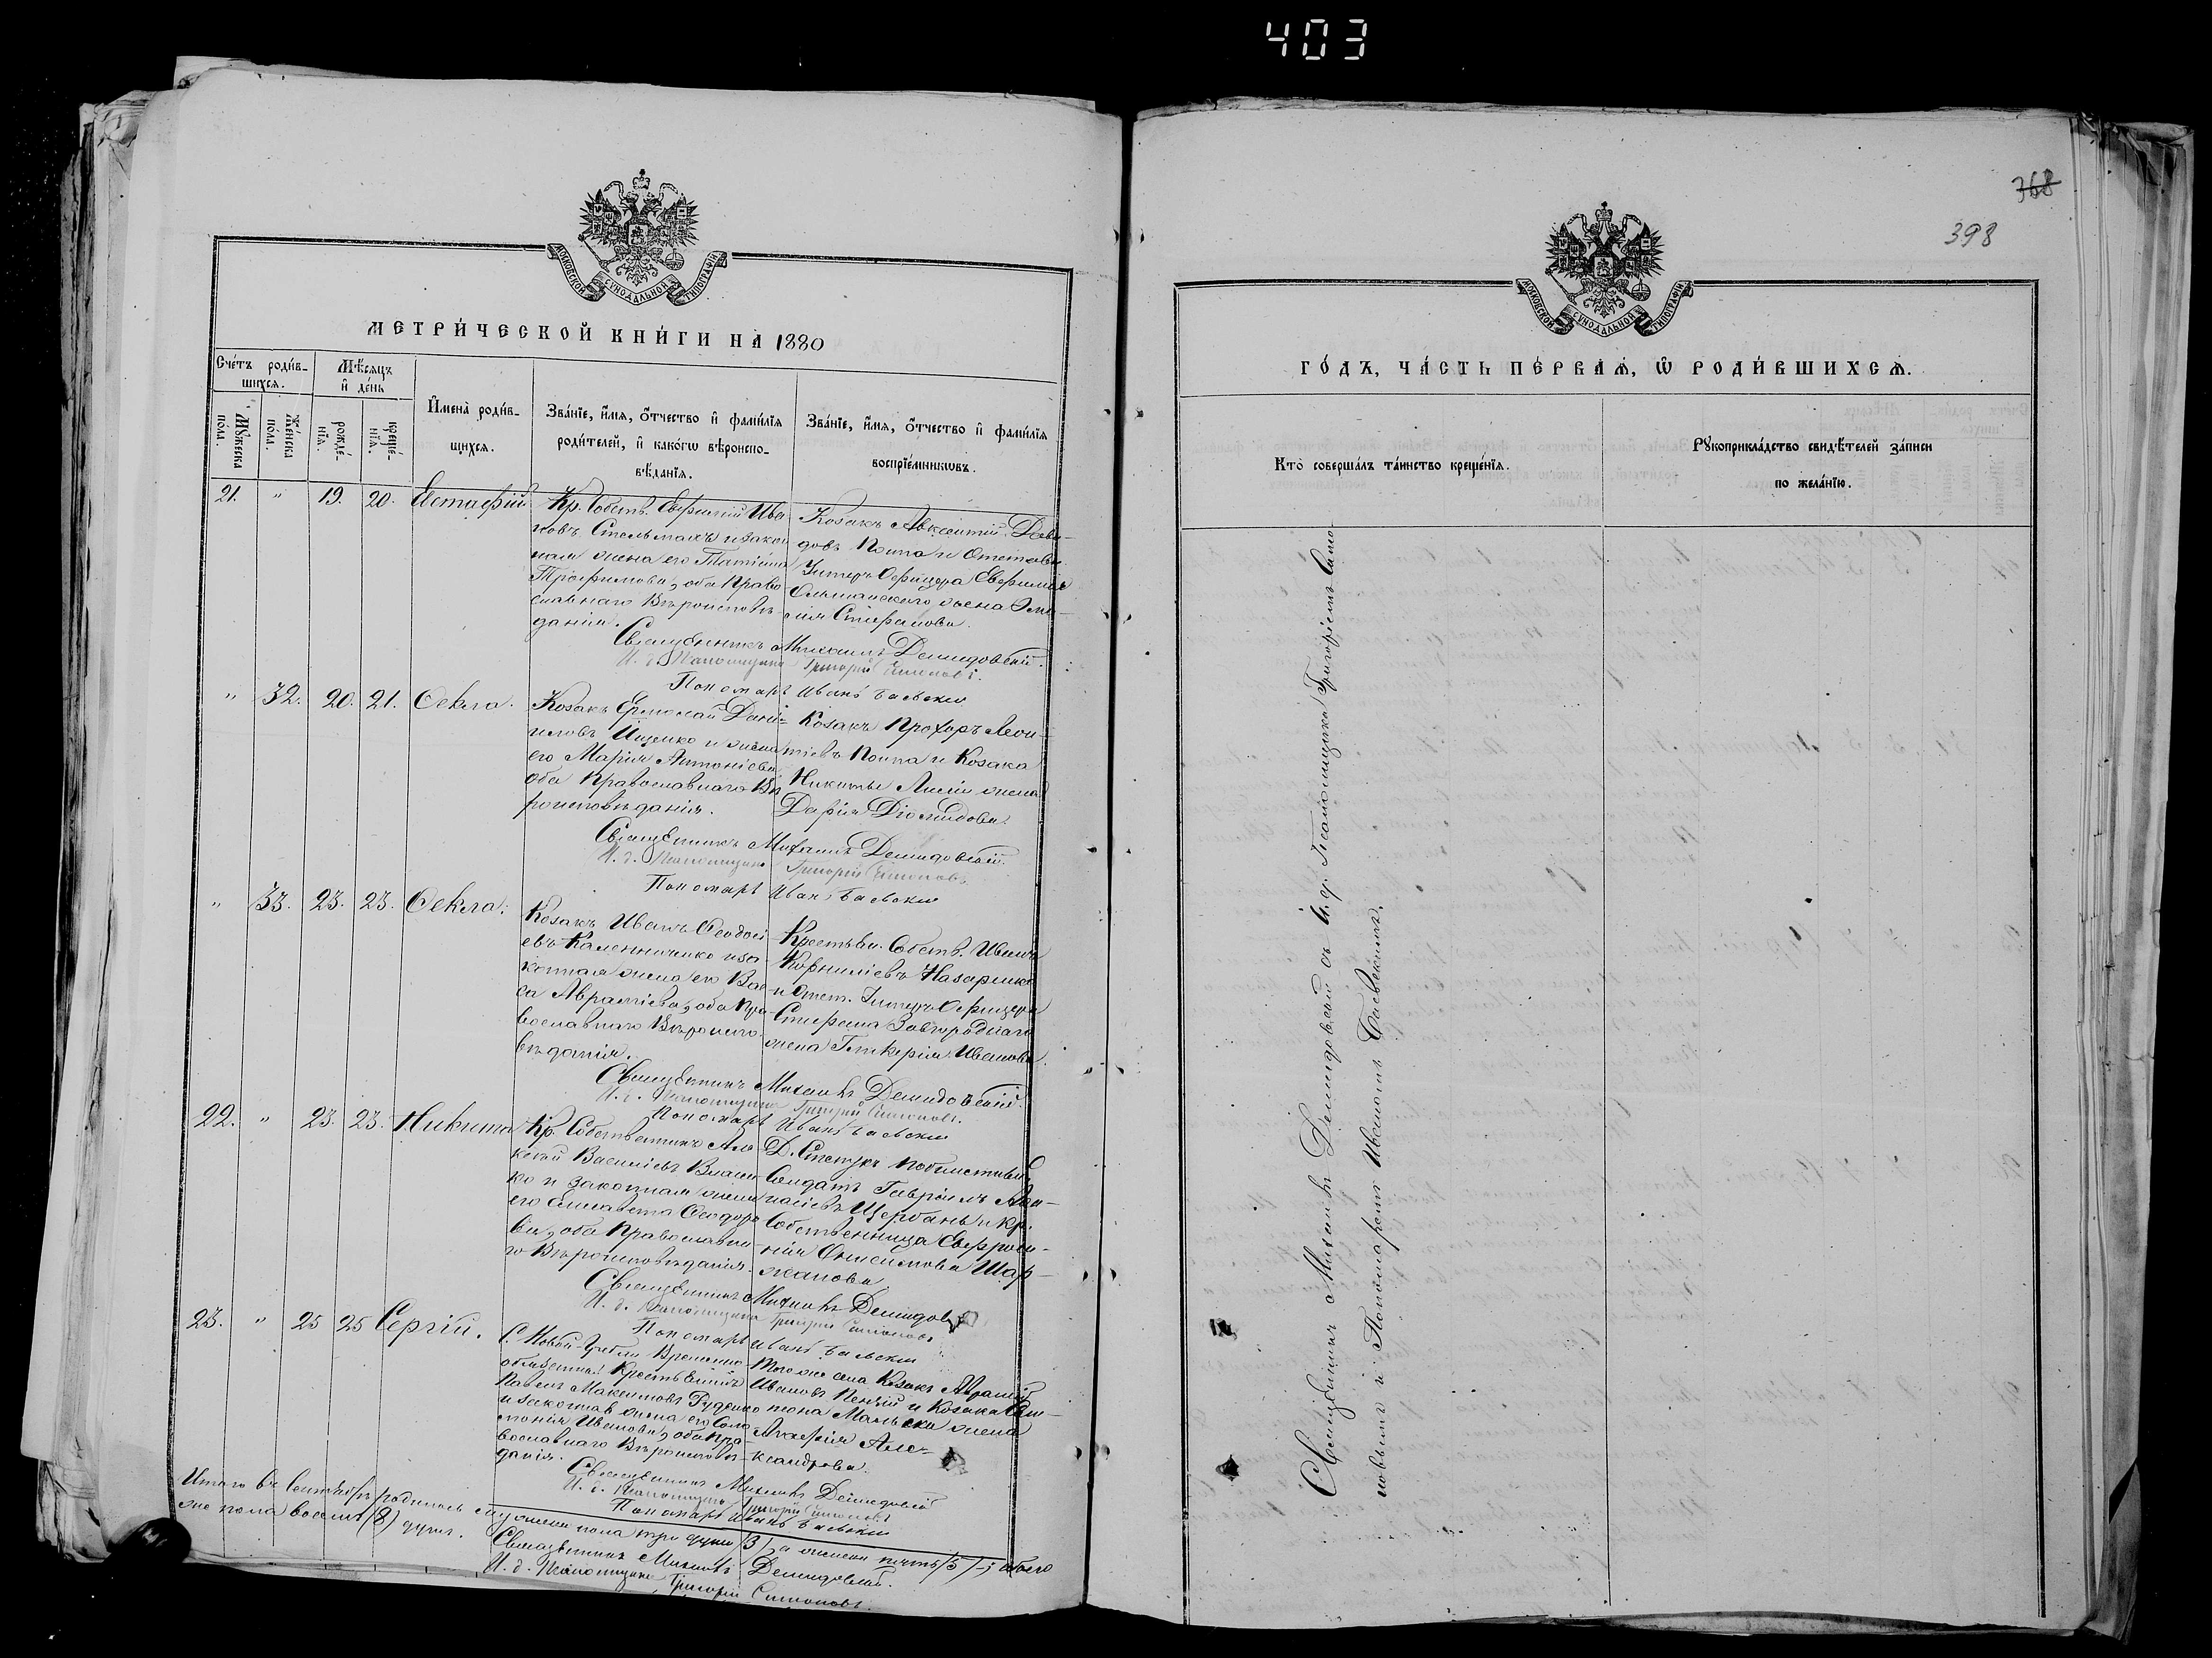 403
368
398
МОСКОВСКОЙ СѴНОДАЛЬНОЙ ТИПОГРАФІИ
МЕТРИ́ЧЕСКОЙ КНИ́ГИ НА 1880
Сче́тъ роди́в-
шихсѧ.
Мѣ́сѧцъ
и҆ де́нь
Мꙋ́жеска
по́ла.
Же́нска
по́ла.
рожде́-
нїѧ.
креще́-
нїѧ.
И҆мена̀ роди́в-
шихсѧ.
Зва́нїе, и҆́мѧ, ѻ҆́тчество и҆ фами́лїѧ
роди́телей, и҆ како́гѡ вѣроиспо-
вѣ́данїѧ.
Зва́нїе, и҆́мѧ, ѻ҆́тчество и҆ фами́лїѧ
воспрїе́мникѡвъ.
21. " 19. 20. Евстафій
Кр. Собств. Евфимій Ива-
новъ Стельмахъ и закон
ная жена его Татіана
Трофимова, оба Право
славнаго Вѣроисповѣ-
данія.
Козакъ Авксентій Дави-
довъ Попа и Отставн.
Унтеръ Офицера Евфимія
жена
Стефанова.
Священникъ Михаилъ Демидовскій.
И. д. Псаломщика Григорій Симоновъ.
Пономарь Иванъ Баевскій
" 32. 20. 21. Ѳекла.
Козакъ Ермолай Дани-
иловъ Ищенко и жена
его Марія Антоніева
оба Православнаго Вѣ
роисповѣданія.
Козакъ Прохоръ Леон-
тіевъ Попа и Козака
Никиты жена
Дарія Діомидова.
Священникъ Михаилъ Демидовскій.
И. д. Псаломщика Григорій Симоновъ.
Пономарь Иванъ Баевскій
" 33. 23. 23. Ѳекла.
Козакъ Иванъ Ѳеодосі
евъ Каленниченко и за
конная жена его Вас-
са Авраміева, оба Пра-
вославнаго Вѣроиспо-
вѣданія.
Крестьян. Собств. Иванъ
Корниліевъ Назаренко
и Отст. Унтеръ Офицера
Стефана Завгороднаго
жена Гликерія Иванова.
Священникъ Михаилъ Демидовскій.
И. д. Псаломщика Григорій Симоновъ.
Пономарь Иванъ Баевскій
22. " 23. 23. Никита
Кр. Собственникъ Але
ксѣй Василіевъ Власен
ко и законная жена
его Елисавета Ѳеодоро
ва, оба Православна
го Вѣроисповѣданія.
Солдатъ Гавріилъ Афа-
насіевъ Щербань и кр.
Собственница Евфроси-
нія Онисимова Шар-
жанова.
Священникъ Михаилъ Демидов
И. д. Псаломщика Григорій Симоновъ
Пономарь Иванъ Баевскій
23. " 25 25 Сергій.
С. Новой-Гребли Временно-
обязанный Крестьянинъ
Павелъ Максимовъ Руденко
и законная жена его Соло-
монія Иванова, оба Пра
вославнаго Вѣроисповѣ-
данія.
Того же села Козакъ Аврамій
Ивановъ и Козака
жена
Агафія Але-
ксандрова.
Священникъ Михаилъ Демидовскій
И. д. Псаломщика Григорій Симоновъ
Пономарь Иванъ Баевскій
Итого въ Сентябрѣ родилось мужеска пола три души (3), а женска пять (5), обоего
же пола восемь (8) душъ.
Священникъ Михаилъ Демидовскій.
И. д. Псаломщика Григорій Симоновъ.
МОСКОВСКОЙ СѴНОДАЛЬНОЙ ТИПОГРАФІИ
ГО́ДЪ, ЧА́СТЬ ПЕ́РВАѦ, Ѡ҆ РОДИ́ВШИХСѦ.
Кто̀ соверша́лъ та́инство креще́нїѧ.
Рꙋкоприкла́дство свидѣ́телей за́писи
по жела́нїю.
Священникъ Михаилъ Демидовскій съ И. д. Псаломщика Григоріемъ Симо-
новымъ и Пономаремъ Иваномъ Баевскимъ.